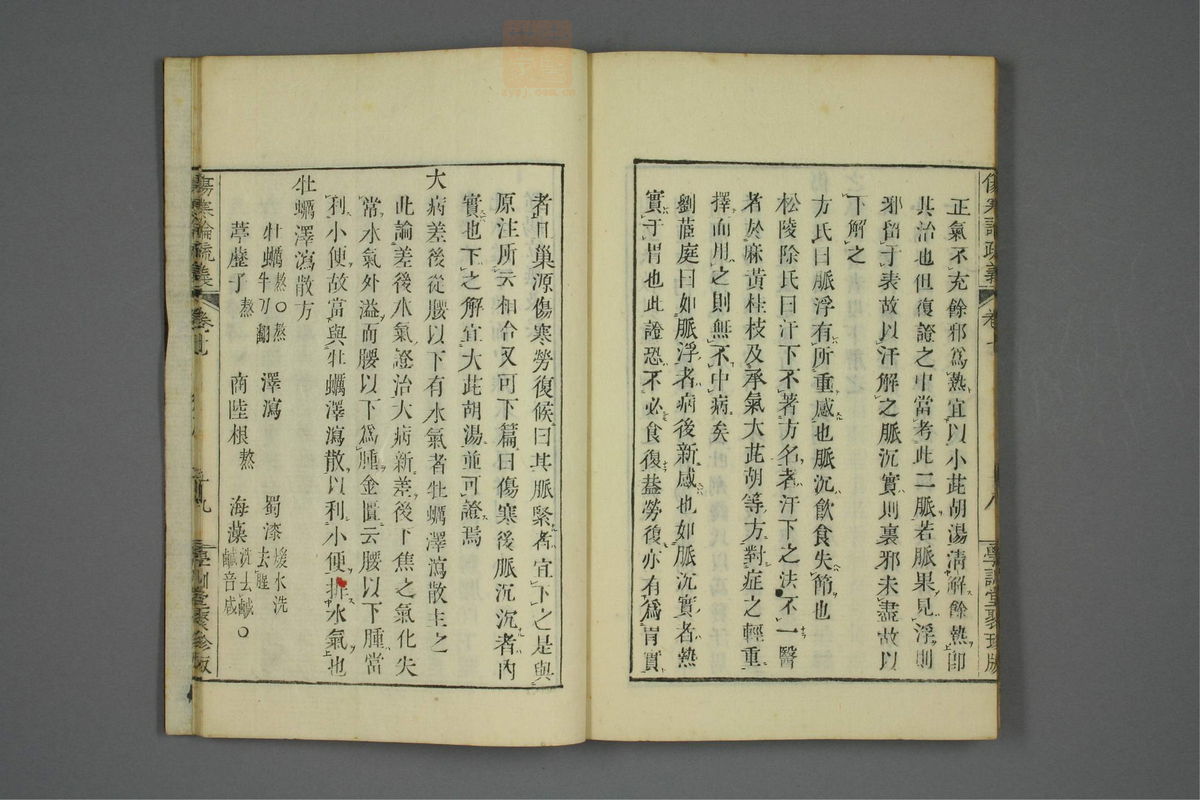 正氣不充餘邪爲熱宜以小茈胡湯淸解餘熱卽
其治也但復證之中當考此二脈若脈果見浮則
邪留于表故以汗解之脈沉實則裏邪未盡故以
下解之
方氏曰脈浮有所重感也脈沉飮食失節也
松陵除氏曰汗下不著方名者汗下之法不一醫
者於麻黃桂枝及承氣大茈胡等方對症之輕重
擇而用之則無不中病矣
劉茝庭曰如脈浮者病後新感也如脈沉實者熱
實于胃也此證恐不必食復葢勞復亦有爲胃實
者且巢源傷寒勞復候曰其脈緊者宜下之是與
原注所云相合又可下篇曰傷寒後脈沉沉者內
實也下之解宜大茈胡湯並可證焉
大病差後從腰以下有水氣者牡蠣澤瀉散主之
此論差後水氣證治大病新差後下焦之氣化失
常水氣外溢而腰以下爲腫金匱云腰以下腫當
利小便故當與牡蠣澤瀉散以利小便排水氣也
牡蠣澤瀉散方
牡蠣熬〇熬牛刀翻 澤瀉 蜀漆煖水洗去腥
葶藶子熬 商陸根熬 海藻洗去鹹〇鹹音咸
傷寒論疏義 卷七 學訓堂聚珍版